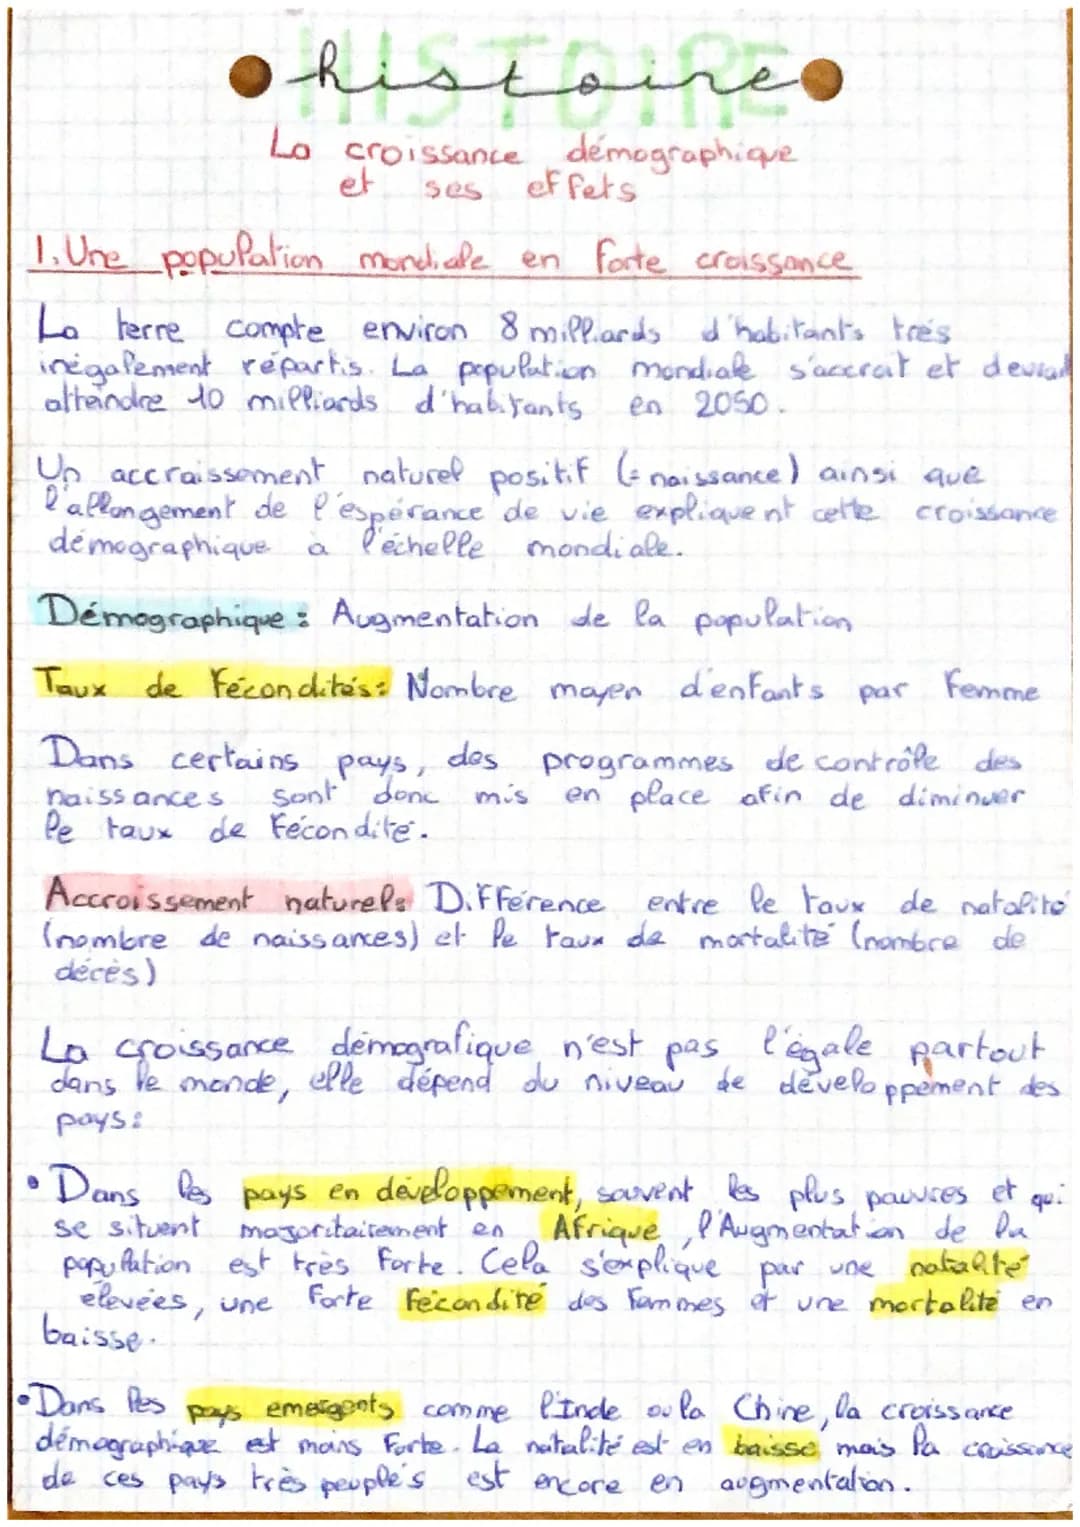 HISTOIRE
histoire
La croissance démographique
et ses effets
1. Une population mondiale en forte croissance
La terre compte environ 8 milliards d'habitants très
inégalement répartis. La population mondiale s'accroit et devrait
atteindre 10 milliards d'habitants en 2050.
Un accraissement naturel positif (= naissance) ainsi que
l'allongement de l'espérance de vie expliquent cette croissance
démographique à l'échelle mondiale.
Démographique : Augmentation de la population
Taux de fécondités : Nombre moyen d'enfants par femme
Dans certains pays, des programmes de contrôle des
naissances sont donc mis en place afin de diminuer
le taux de fécondité.
Accroissement naturel : Différence entre le taux de natalité
(nombre de naissances) et le taux de mortalité (nombre de
décès)
La croissance démografique n'est pas l'égale partout
dans le monde, elle dépend du niveau de développement des
pays :
• Dans les pays en développement, souvent les plus pauvres et qui
se situent majoritairement en Afrique, l'Augmentation de la
population est très forte. Cela s'explique par une natalité
élevées, une forte fécondité des femmes et une mortalité en
baisse.
• Dans les pays emergents comme l'Inde ou la Chine, la croissance
démographique est moins forte. La natalité est en baisse, mais la croissance
de ces pays très peuplés est encore en augmentation.